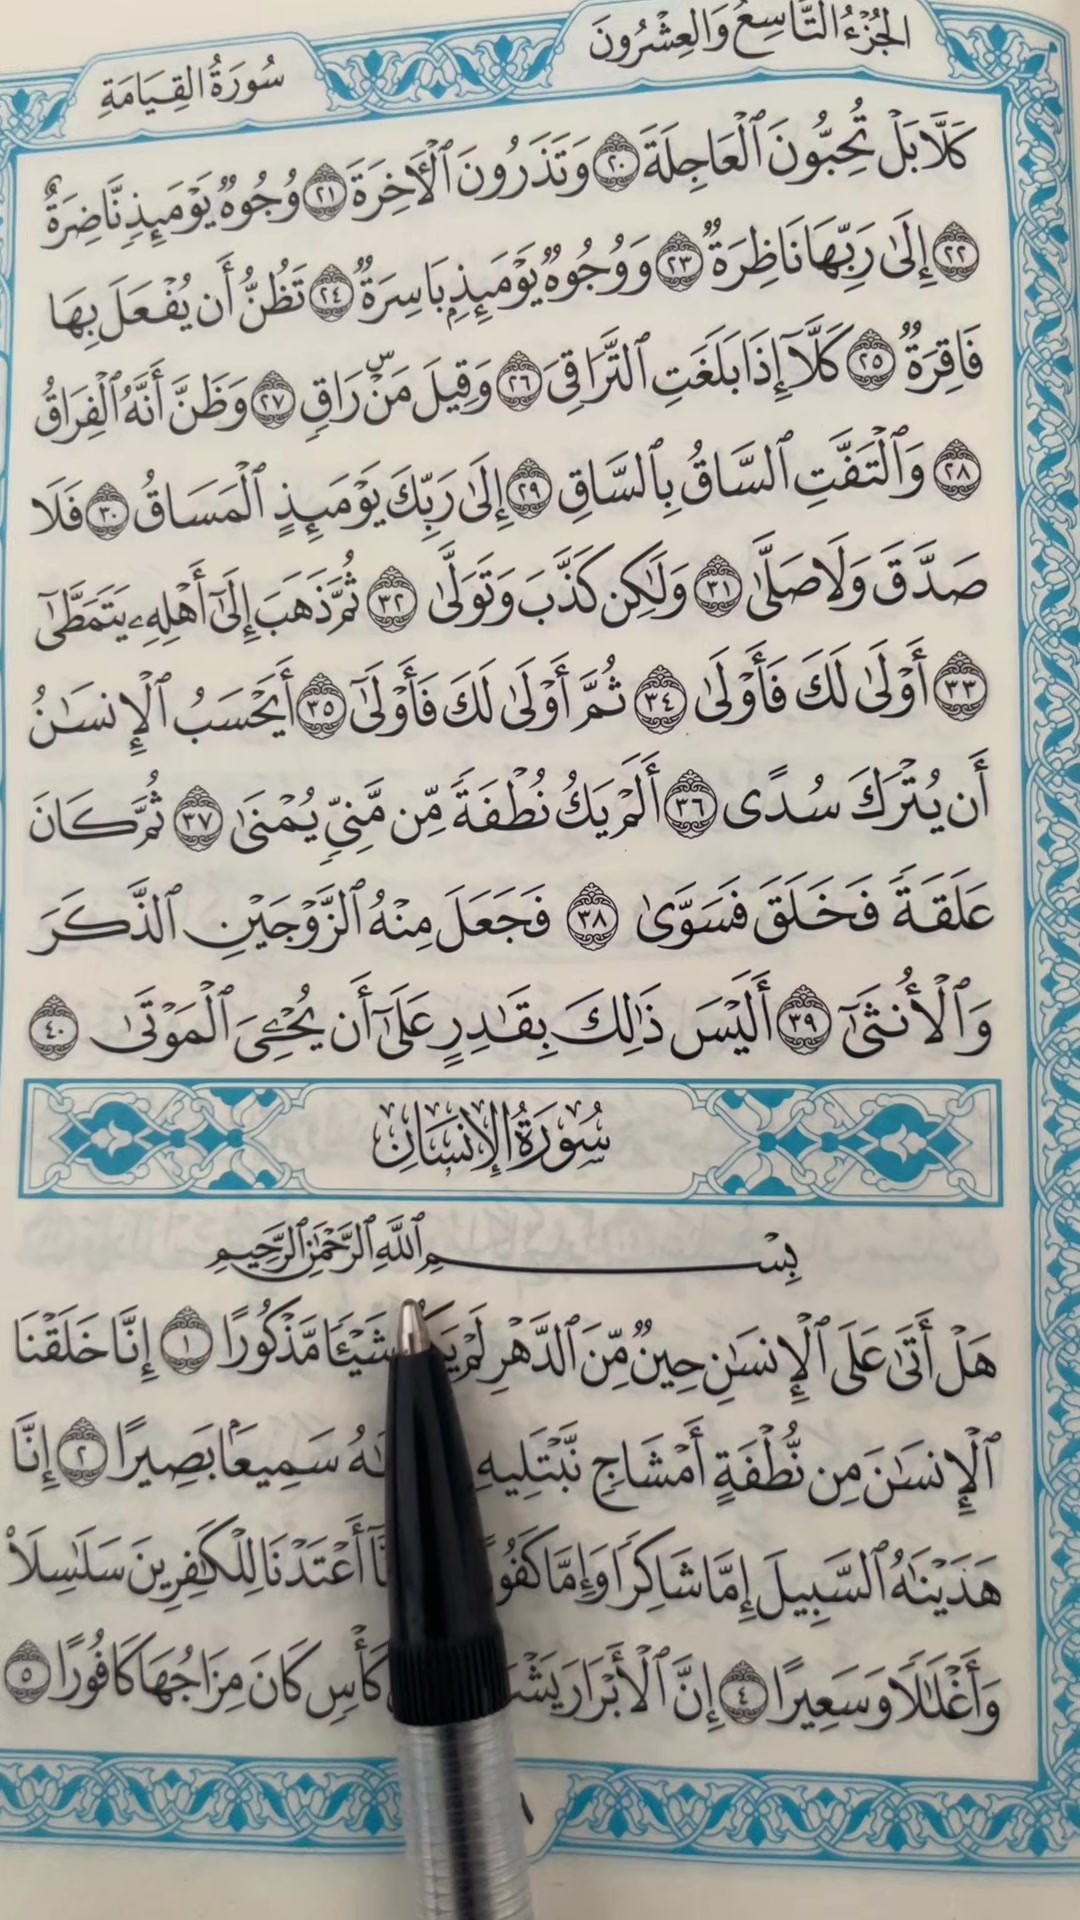 الجُزْءُ التَّاسِعُ وَالعِشْرُونَ
سُورَةُ القِيَامَةِ
كَلَّا بَلْ تُحِبُّونَ ٱلْعَاجِلَةَ ٢٠ وَتَذَرُونَ ٱلْأٓخِرَةَ ٢١ وُجُوهٌ يَوْمَئِذٍ نَّاضِرَةٌ
٢٢ إِلَىٰ رَبِّهَا نَاظِرَةٌ ٢٣ وَوُجُوهٌ يَوْمَئِذٍۭ بَاسِرَةٌ ٢٤ تَظُنُّ أَن يُفْعَلَ بِهَا
فَاقِرَةٌ ٢٥ كَلَّآ إِذَا بَلَغَتِ ٱلتَّرَاقِىَ ٢٦ وَقِيلَ مَنْۜ رَاقٍ ٢٧ وَظَنَّ أَنَّهُ ٱلْفِرَاقُ
٢٨ وَٱلْتَفَّتِ ٱلسَّاقُ بِٱلسَّاقِ ٢٩ إِلَىٰ رَبِّكَ يَوْمَئِذٍ ٱلْمَسَاقُ ٣٠ فَلَا
صَدَّقَ وَلَا صَلَّىٰ ٣١ وَلَٰكِن كَذَّبَ وَتَوَلَّىٰ ٣٢ ثُمَّ ذَهَبَ إِلَىٰٓ أَهْلِهِۦ يَتَمَطَّىٰٓ
٣٣ أَوْلَىٰ لَكَ فَأَوْلَىٰ ٣٤ ثُمَّ أَوْلَىٰ لَكَ فَأَوْلَىٰٓ ٣٥ أَيَحْسَبُ ٱلْإِنسَٰنُ
أَن يُتْرَكَ سُدًى ٣٦ أَلَمْ يَكُ نُطْفَةً مِّن مَّنِىٍّ يُمْنَىٰ ٣٧ ثُمَّ كَانَ
عَلَقَةً فَخَلَقَ فَسَوَّىٰ ٣٨ فَجَعَلَ مِنْهُ ٱلزَّوْجَيْنِ ٱلذَّكَرَ
وَٱلْأُنثَىٰٓ ٣٩ أَلَيْسَ ذَٰلِكَ بِقَٰدِرٍ عَلَىٰٓ أَن يُحْۦِىَ ٱلْمَوْتَىٰ ٤٠
سُورَةُ الإِنسَانِ
بِسْمِ ٱللَّهِ ٱلرَّحْمَٰنِ ٱلرَّحِيمِ
هَلْ أَتَىٰ عَلَى ٱلْإِنسَٰنِ حِينٌ مِّنَ ٱلدَّهْرِ لَمْ شَيْـًٔا مَّذْكُورًا ١ إِنَّا خَلَقْنَا
ٱلْإِنسَٰنَ مِن نُّطْفَةٍ أَمْشَاجٍ نَّبْتَلِيهِ سَمِيعًۢا بَصِيرًا ٢ إِنَّا
هَدَيْنَٰهُ ٱلسَّبِيلَ إِمَّا شَاكِرًا وَإِمَّا أَعْتَدْنَا لِلْكَٰفِرِينَ سَلَٰسِلَا۟
وَأَغْلَٰلًا وَسَعِيرًا ٤ إِنَّ ٱلْأَبْرَارَ كَأْسٍ كَانَ مِزَاجُهَا كَافُورًا ٥